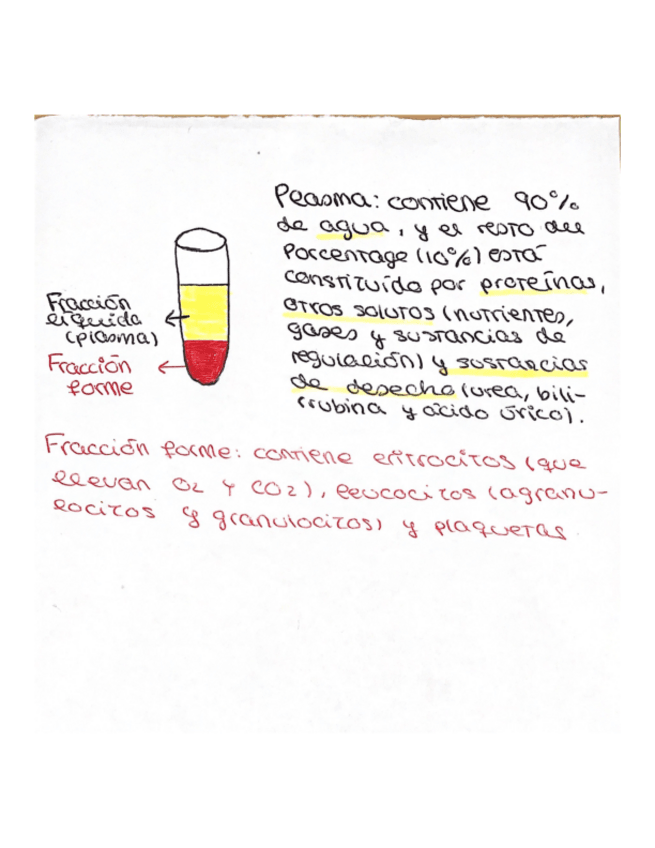 Plasma: contiene 90%
de agua, y el resto del
porcentage (10%) está
constituído por proteínas,
otros solutos (nutrientes,
gases y sustancias de
regulación) y sustancias
de desecho (urea, bili-
rrubina y ácido úrico).
Fracción
líquida
(plasma)
Fracción
forme
Fracción forme: contiene eritrocitos (que
llevan O2 y CO2), leucocitos (agranu-
locitos y granulocitos) y plaquetas.